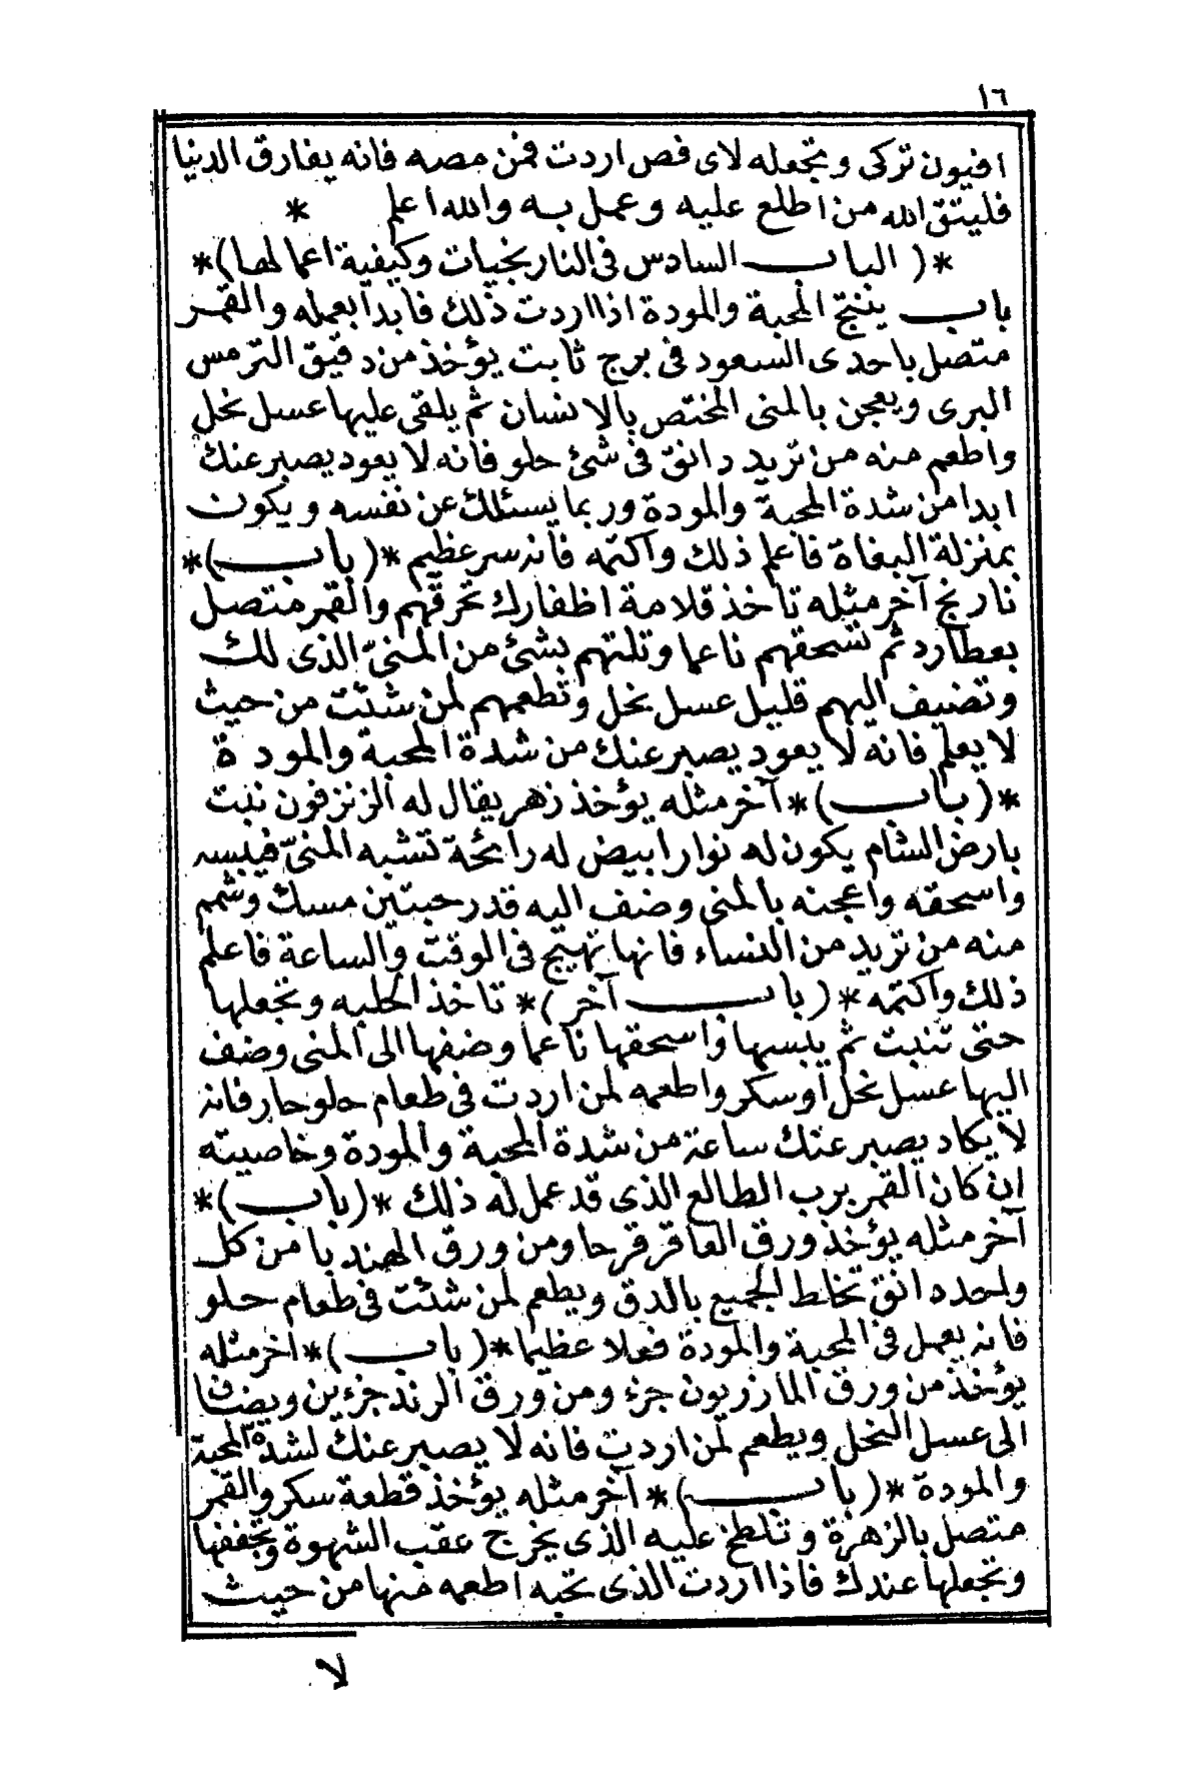 ١٦
افيون تركى وتجعله لاى فص اردت فمن مصه فانه يفارق الدنيا
فليتق الله من اطلع عليه وعمل به والله اعلم *
*( الباب السادس فى النارنجيات وكيفية اعمالها)*
باب ينتج المحبة والمودة اذا اردت ذلك فابدا بعمله والقمر
متصل باحدى السعود فى برج ثابت يؤخذ من دقيق الترمس
البرى ويعجن بالمنى المختص بالانسان ثم يلقى عليها عسل نحل
واطعم منه من تريد دانق فى شئ حلو فانه لا يعود يصبر عنك
ابدا من شدة المحبة والمودة وربما يسئلك عن نفسه ويكون
بمنزلة البغاة فاعلم ذلك واكتمه فانه سر عظيم *( باب )*
نارنج آخر مثله تاخذ قلامة اظفارك تحرقهم والقمر متصل
بعطارد ثم تسحقهم ناعما وتلتهم بشئ من المنىّ الذى لك
وتضيف اليهم قليل عسل نحل وتطعمهم لمن شئت من حيث
لا يعلم فانه لا يعود يصبر عنك من شدة المحبة والمودة
*( باب )* آخر مثله يؤخذ زهر يقال له الزنزفون نبت
بارض الشام يكون له نوار ابيض له رائحة تشبه المنىّ فيبسه
واسحقه واعجنه بالمنى وضف اليه قدر حبتين مسك وشمم
منه من تريد من النساء فانها تهيج فى الوقت والساعة فاعلم
ذلك واكتمه *( باب آخر )* تاخذ الحلبه وتجعلها
حتى تنبت ثم يبسها واسحقها ناعما وضفها الى المنى وضف
اليها عسل نحل او سكر واطعمه لمن اردت فى طعام حلو حار فانه
لا يكاد يصبر عنك ساعة من شدة المحبة والمودة وخاصيته
ان كان القمر برب الطالع الذى قد عمل له ذلك *( باب )*
آخر مثله يؤخذ ورق العاقر قرحا ومن ورق الهندبا من كل
واحد دانق تخلط الجميع بالدق ويطعم لمن شئت فى طعام حلو
فانه يعمل فى المحبة والمودة فعلا عظيما *( باب )* اخر مثله
يؤخذ من ورق المازريون جزء ومن ورق الرند جزءين ويضاف
الى عسل النحل ويطعم لمن اردت فانه لا يصبر عنك لشدة المحبة
والمودة *( باب )* آخر مثله يؤخذ قطعة سكر والقمر
متصل بالزهرة وتلطخ عليه الذى يخرج عقب الشهوة وتجففها
وتجعلها عندك فاذا اردت الذى تحبه اطعمه منها من حيث
لا